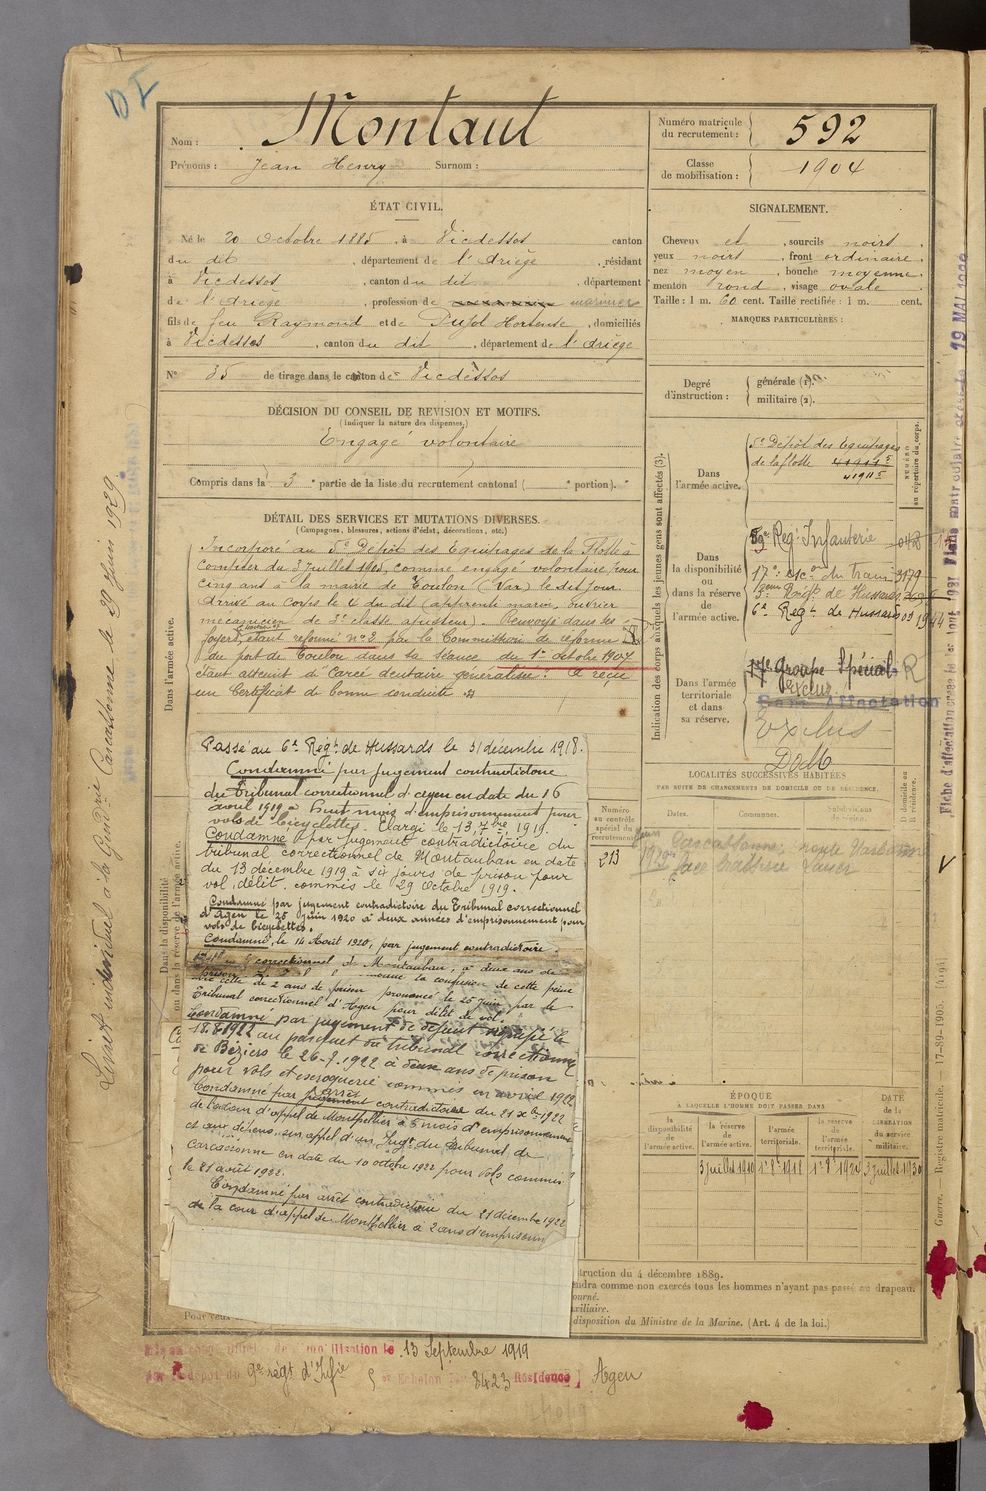 DI
Nom : Montaut
Prénoms : Jean Henry Surnom :
Numéro matricule du recrutement : 592
Classe de mobilisation : 1904
ÉTAT CIVIL.
Né le 20 Octobre 1885, à Vicdessos canton
du dit, département de l'Ariège, résidant
à Vicdessos, canton du dit, département
de l'Ariège, profession de marinier
fils de feu Raymond et de Pujol Hortense, domiciliés
à Vicdessos, canton du dit, département de l'Ariège
N° 35 de tirage dans le canton de Vicdessos
SIGNALEMENT.
Cheveux et, sourcils noirs,
yeux noirs, front ordinaire,
nez moyen, bouche moyenne,
menton rond, visage ovale
Taille : 1 m. 60 cent. Taille rectifiée : 1 m. cent.
MARQUES PARTICULIÈRES :
Degré d'instruction :
générale (1).
militaire (2).
DÉCISION DU CONSEIL DE REVISION ET MOTIFS.
(Indiquer la nature des dispenses.)
Engagé volontaire
Compris dans la 3e partie de la liste du recrutement cantonal ( e portion).
DÉTAIL DES SERVICES ET MUTATIONS DIVERSES.
(Campagnes, blessures, actions d'éclat, décorations, etc.)
Dans l'armée active.
Incorporé au 5e Dépôt des Equipages de la Flotte à
compter du 3 Juillet 1905, comme engagé volontaire pour
cinq ans à la mairie de Toulon (Var) le dit jour.
Arrivé au corps le 4 du dit (apprenti marin, ouvrier
mécanicien de 3e classe ajusteur). Renvoyé dans ses
foyers, étant réformé n° 2 par la Commission de réforme
du port de Toulon dans sa séance du 1er octobre 1907
étant atteint d'carie dentaire généralisée. A reçu
un Certificat de bonne conduite
Passé au 6e Régt de Hussards le 31 décembre 1918.
Condamné par jugement contradictoire
du Tribunal correctionnel d'Agen en date du 16
avril 1919 à huit mois d'emprisonnement pour
vols de bicyclettes. Elargi le 13 7bre 1919.
Condamné par jugement contradictoire du
tribunal correctionnel de Montauban en date
du 13 décembre 1919 à six jours de prison pour
vol, délit commis le 29 Octobre 1919.
Condamné par jugement contradictoire du Tribunal correctionnel
d'Agen le 25 juin 1920 à deux années d'emprisonnement pour
vols de bicyclettes.
Condamné, le 14 Août 1920, par jugement contradictoire
correctionnel de Montauban, à deux ans de
prison la confusion de cette peine
avec celle de 2 ans de prison prononcé le 25 juin par le
Tribunal correctionnel d'Agen pour délit de vol.
Condamné par jugement de défaut signifié le
18.8.1922 au parquet du tribunal correctionnel
de Béziers le 26-7-1922 à deux ans de prison
pour vols et escroquerie commis en avril 1922
Condamné par arrêt contradictoire du 21 Xbre 1922
de la Cour d'appel de Montpellier à 6 mois d'emprisonnement
et aux dépens, sur appel d'un Jugt du Tribunal de
Carcassonne en date du 10 octobre 1922 pour vols commis
le 21 août 1922.
Condamné par arrêt contradictoire du 21 décembre 1922
de la cour d'appel de Montpellier à 2 ans d'emprisonn
Dans la disponibilité ou dans la réserve de l'armée active.
Indication des corps auxquels les jeunes gens sont affectés (3).
NUMÉRO au répertoire du corps.
Dans l'armée active.
5e Dépôt des Equipages
de la flotte
41911 5
Dans la disponibilité ou dans la réserve de l'armée active.
59e Reg. Infanterie
17e Escon du Train 3179
de Hussards
6e Regt de Hussards
Dans l'armée territoriale et dans sa réserve.
17e Groupe Spécial R
Exclu
Sans Affectation
Exclus
DoM
LOCALITÉS SUCCESSIVES HABITÉES
PAR SUITE DE CHANGEMENTS DE DOMICILE OU DE RÉSIDENCE.
Numéro au contrôle spécial du recrutement
213
Dates.
Communes.
Subdivisions de région.
D domicile ou R résidence.
Carcassonne, route Narbonne
face
ÉPOQUE
À LAQUELLE L'HOMME DOIT PASSER DANS
la disponibilité de l'armée active.
la réserve de l'armée active.
l'armée territoriale.
la réserve de l'armée territoriale.
DATE de la LIBÉRATION du service militaire.
3 juillet 1910
3 juillet 1930
truction du 4 décembre 1889.
endra comme non exercés tous les hommes n'ayant pas passé au drapeau.
ourné.
uxiliaire.
disposition du Ministre de la Marine. (Art. 4 de la loi.)
Pour
isation le 13 Septembre 1919
dépôt du 9e régt d'Infie Echelon 3423 Résidence ] Agen
Livret individuel à la Gendrie Carcassonne le 29 Juin 1929
Guerre. — Registre matricule. — 17-89-1905.
19 MAI
Fiche d'affectation